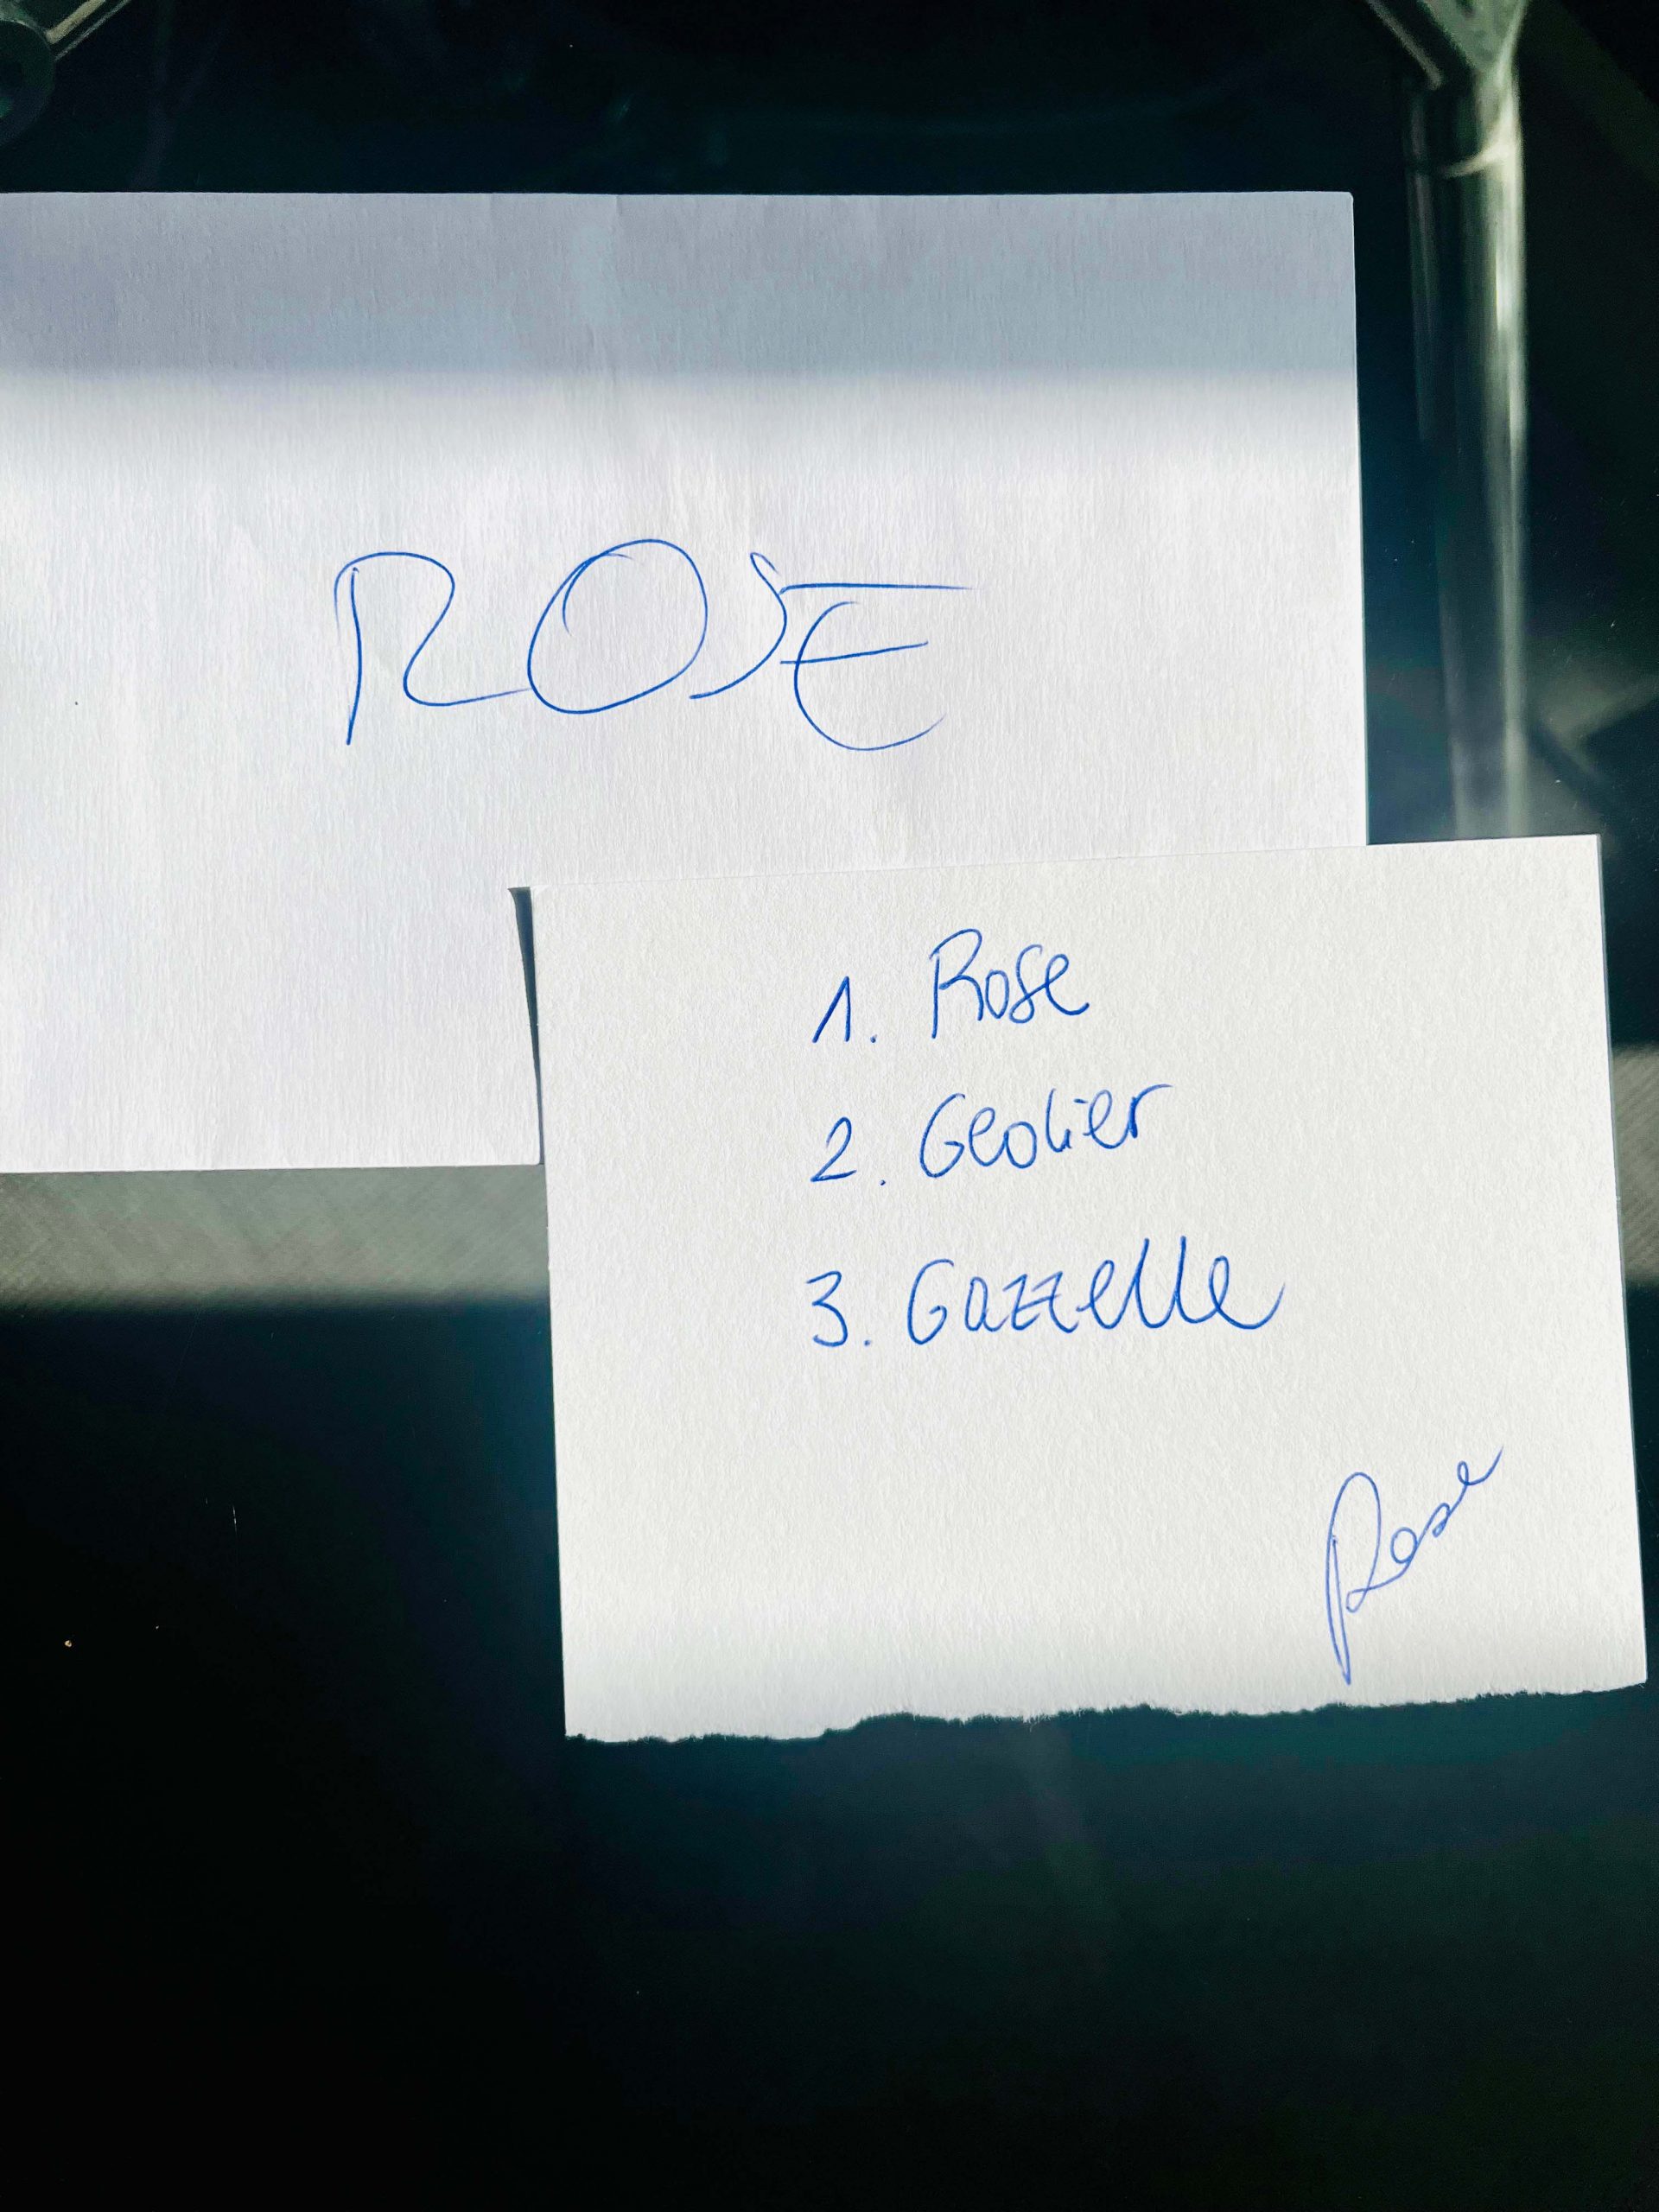 ROSE
1. Rose
2. Geolier
3. Gazzelle
Rose